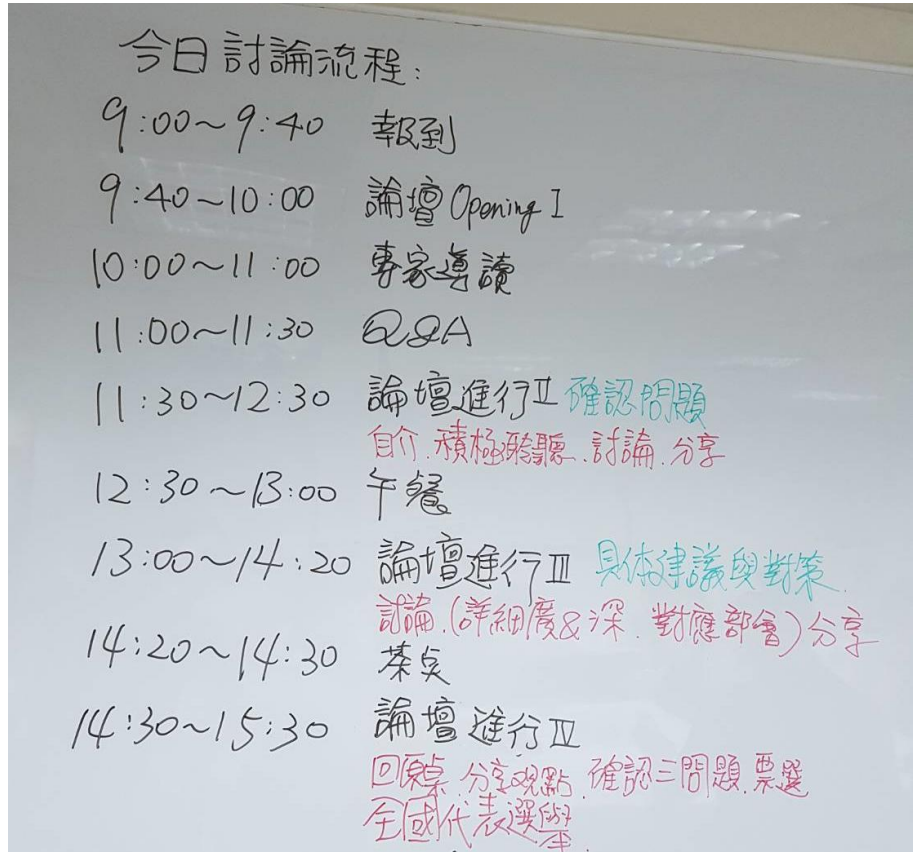 今日討論流程:
9:00~9:40 報到
9:40~10:00 論壇 Opening I
10:00~11:00 專家導讀
11:00~11:30 Q&A
11:30~12:30 論壇進行II 確認問題
自介.積極聆聽.討論.分享
12:30~13:00 午餐
13:00~14:20 論壇進行III 具体建議與對策.
討論.(詳細廣&深.對應部會)分享
14:20~14:30 茶点
14:30~15:30 論壇進行IV
回原桌.分享观點.確認三問題.票選
全國代表選舉.